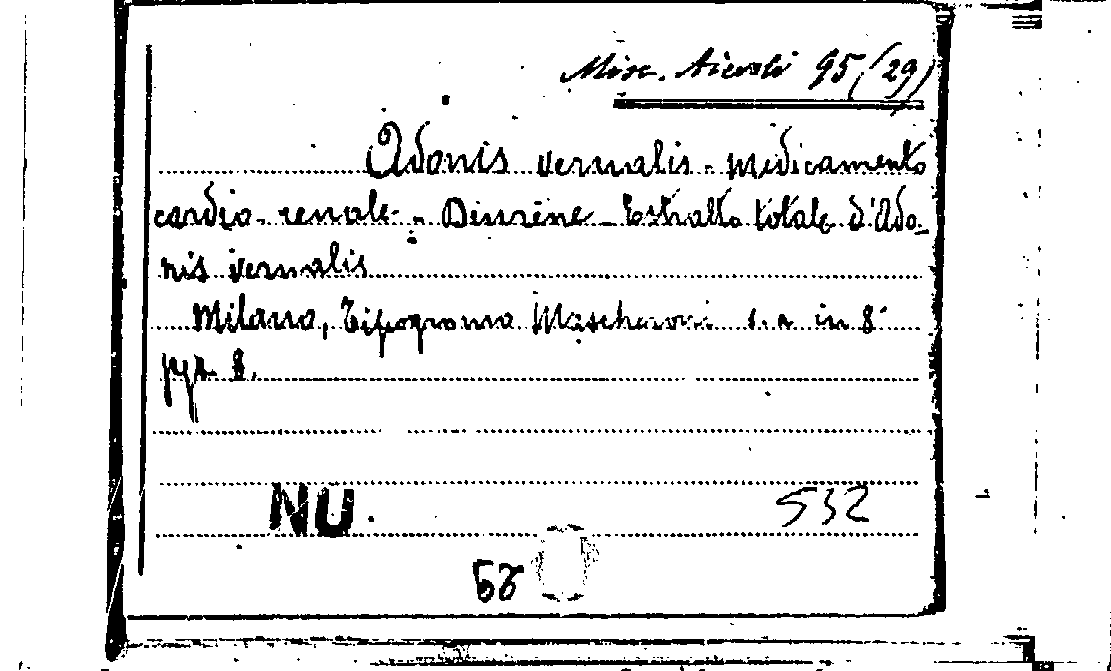 Misc. Aievoli 95 (29)
Adonis vernalis - Medicamento
cardio-renale - Diurène - Estratto totale d'Ado-
nis vernalis
Milano, Tipogroma Mascheroni s. a. in 8°
pp. 8.
NU.
532
58